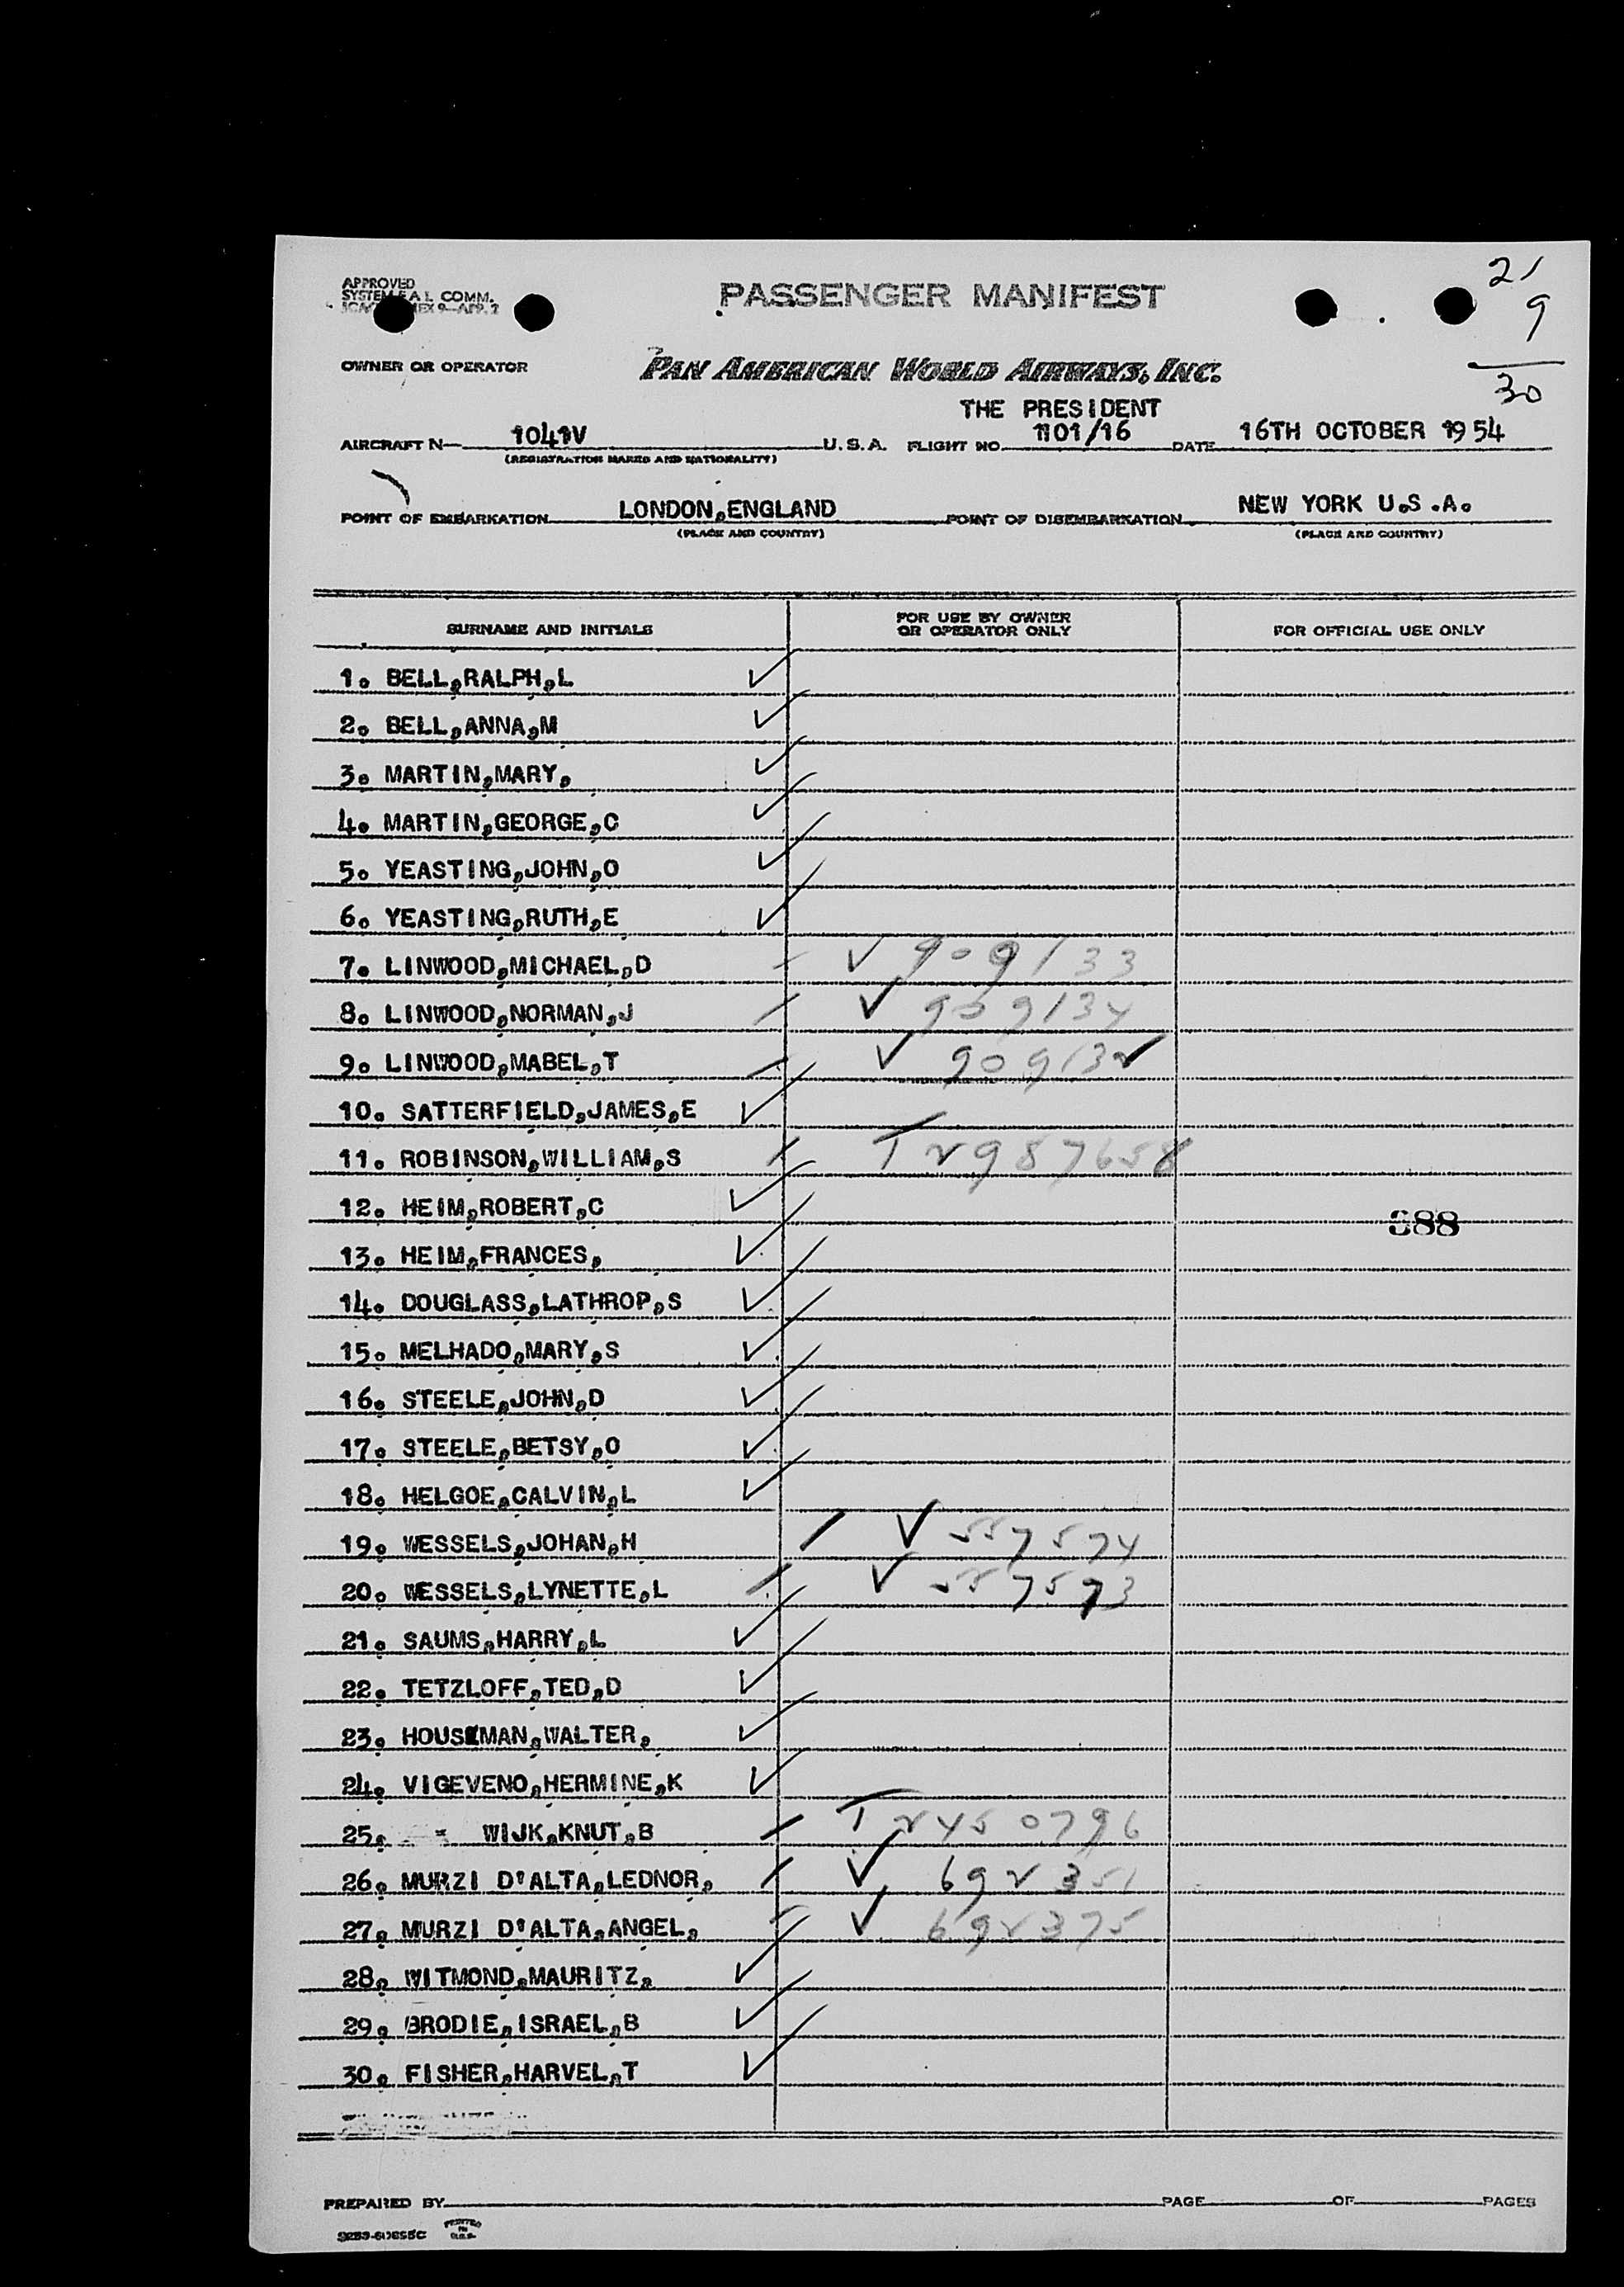 21
9
30
APPROVED
COMM.
PASSENGER MANIFEST
OWNER OR OPERATOR PAN AMERICAN WORLD AIRWAYS, INC.
THE PRESIDENT
AIRCRAFT N— 1041V U.S.A. FLIGHT NO. 1101/16 DATE 16TH OCTOBER 1954
(REGISTRATION MARKS AND NATIONALITY)
POINT OF EMBARKATION LONDON,ENGLAND POINT OF DISEMBARKATION NEW YORK U.S.A.
(PLACE AND COUNTRY) (PLACE AND COUNTRY)
SURNAME AND INITIALS FOR USE BY OWNER OR OPERATOR ONLY FOR OFFICIAL USE ONLY
1. BELL,RALPH,L ✓
2. BELL,ANNA,M ✓
3. MARTIN,MARY, ✓
4. MARTIN,GEORGE,C ✓
5. YEASTING,JOHN,O ✓
6. YEASTING,RUTH,E ✓
7. LINWOOD,MICHAEL,D / ✓ 909133
8. LINWOOD,NORMAN,J / ✓ 909134
9. LINWOOD,MABEL,T / ✓ 909132
10. SATTERFIELD,JAMES,E ✓
11. ROBINSON,WILLIAM,S / T 2987658
12. HEIM,ROBERT,C ✓
388
13. HEIM,FRANCES, ✓
14. DOUGLASS,LATHROP,S ✓
15. MELHADO,MARY,S ✓
16. STEELE,JOHN,D ✓
17. STEELE,BETSY,O ✓
18. HELGOE,CALVIN,L ✓
19. WESSELS,JOHAN,H / ✓ 557574
20. WESSELS,LYNETTE,L / ✓ 557573
21. SAUMS,HARRY,L ✓
22. TETZLOFF,TED,D ✓
23. HOUSEMAN,WALTER, ✓
24. VIGEVENO,HERMINE,K ✓
25. WIJK,KNUT,B / T 2450796
26. MURZI D'ALTA,LEDNOR, / ✓ 692351
27. MURZI D'ALTA,ANGEL, / ✓ 692375
28. WITMOND,MAURITZ, ✓
29. BRODIE,ISRAEL,B ✓
30. FISHER,HARVEL,T ✓
PREPARED BY PAGE OF PAGES
PRINTED IN U.S.A.